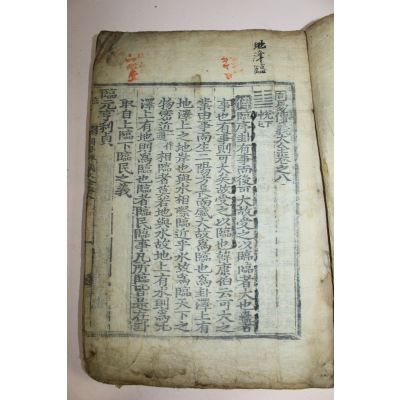 地澤臨
周易傳義大全卷之八
兌下
傳臨序卦有事而後可大故受之以臨臨者大也蠱者
事也有事則可大矣故受之以臨也韓康伯云可大之
業由事而生二陽方長而盛大故爲臨也爲卦澤上有
地澤上之地岸也與水相際臨近乎水故爲臨天下之
物密近相臨者莫若地與水故地上有水則爲比
澤上有地則爲臨也臨者臨民臨事凡所臨皆是在卦
取自上臨下臨民之義
臨元亨利貞